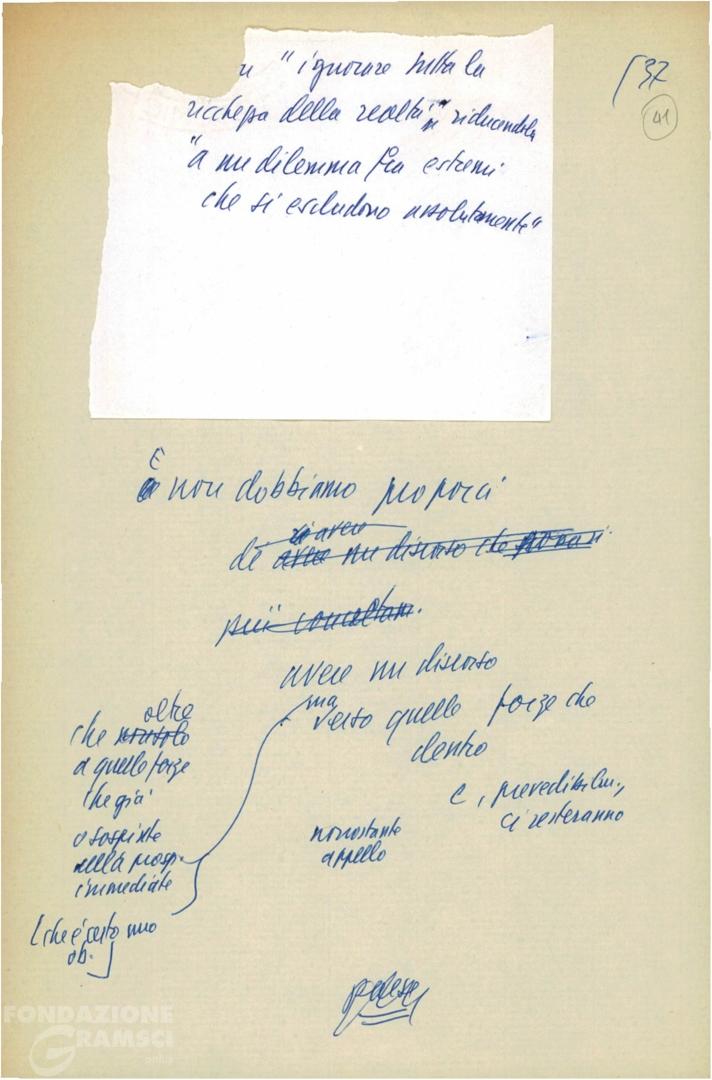 "ignorare tutta la
ricchezza della realtà" riducendola
"a un dilemma fra estremi
che si escludono assolutamente"
37
41
E non dobbiamo proporci
di avere un discorso che
più
avere un discorso
ma
verso quelle forze che
dentro
e, prevedibilm.,
ci resteranno
nonostante
appello
oltre
che
a quelle forze
che già
o sospinte
nella prosp.
immediate
(che è certo uno
ob.
FONDAZIONE
GRAMSCI
onlus